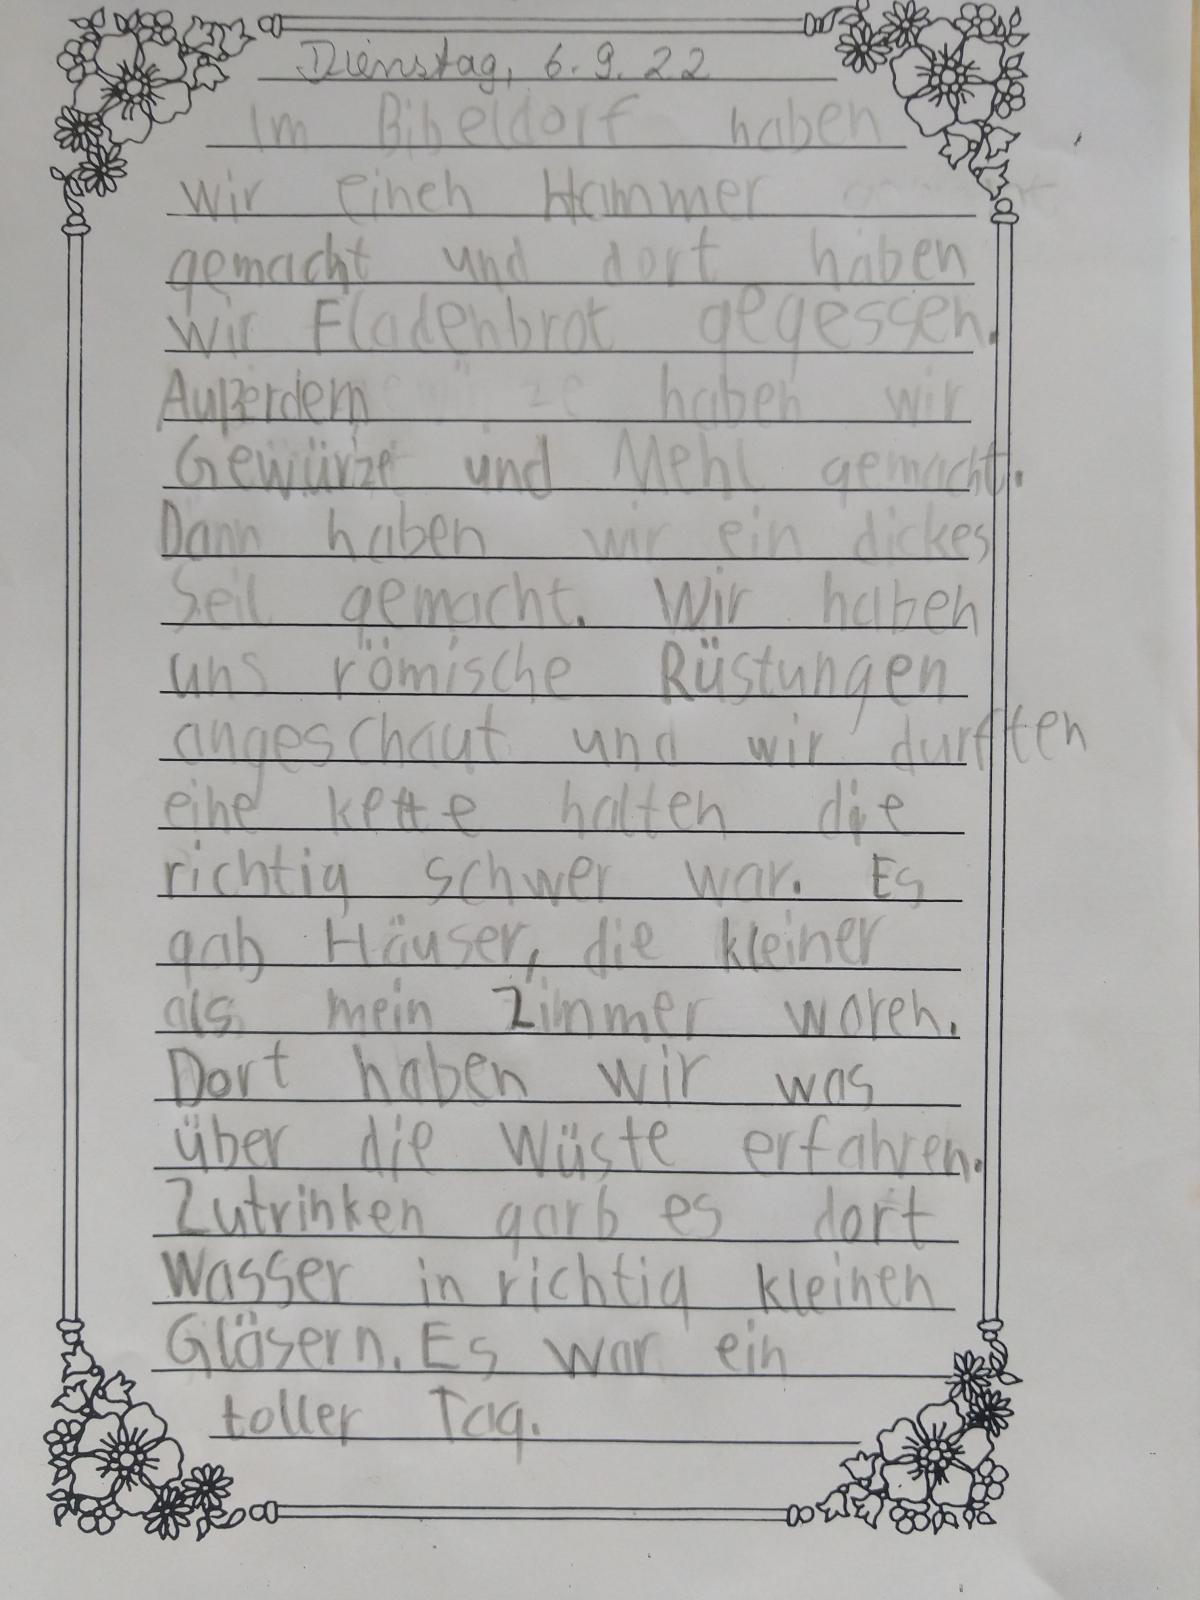 Dienstag, 6.9.22
Im Bibeldorf haben
wir einen Hammer
gemacht und dort haben
wir Fladenbrot gegessen.
Außerdem haben wir
Gewürze und Mehl gemacht.
Dann haben wir ein dickes
Seil gemacht. Wir haben
uns römische Rüstungen
angeschaut und wir durften
eine kette halten die
richtig schwer war. Es
gab Häuser, die kleiner
als mein Zimmer waren.
Dort haben wir was
über die Wüste erfahren.
Zutrinken garb es dort
Wasser in richtig kleinen
Gläsern. Es war ein
toller Tag.